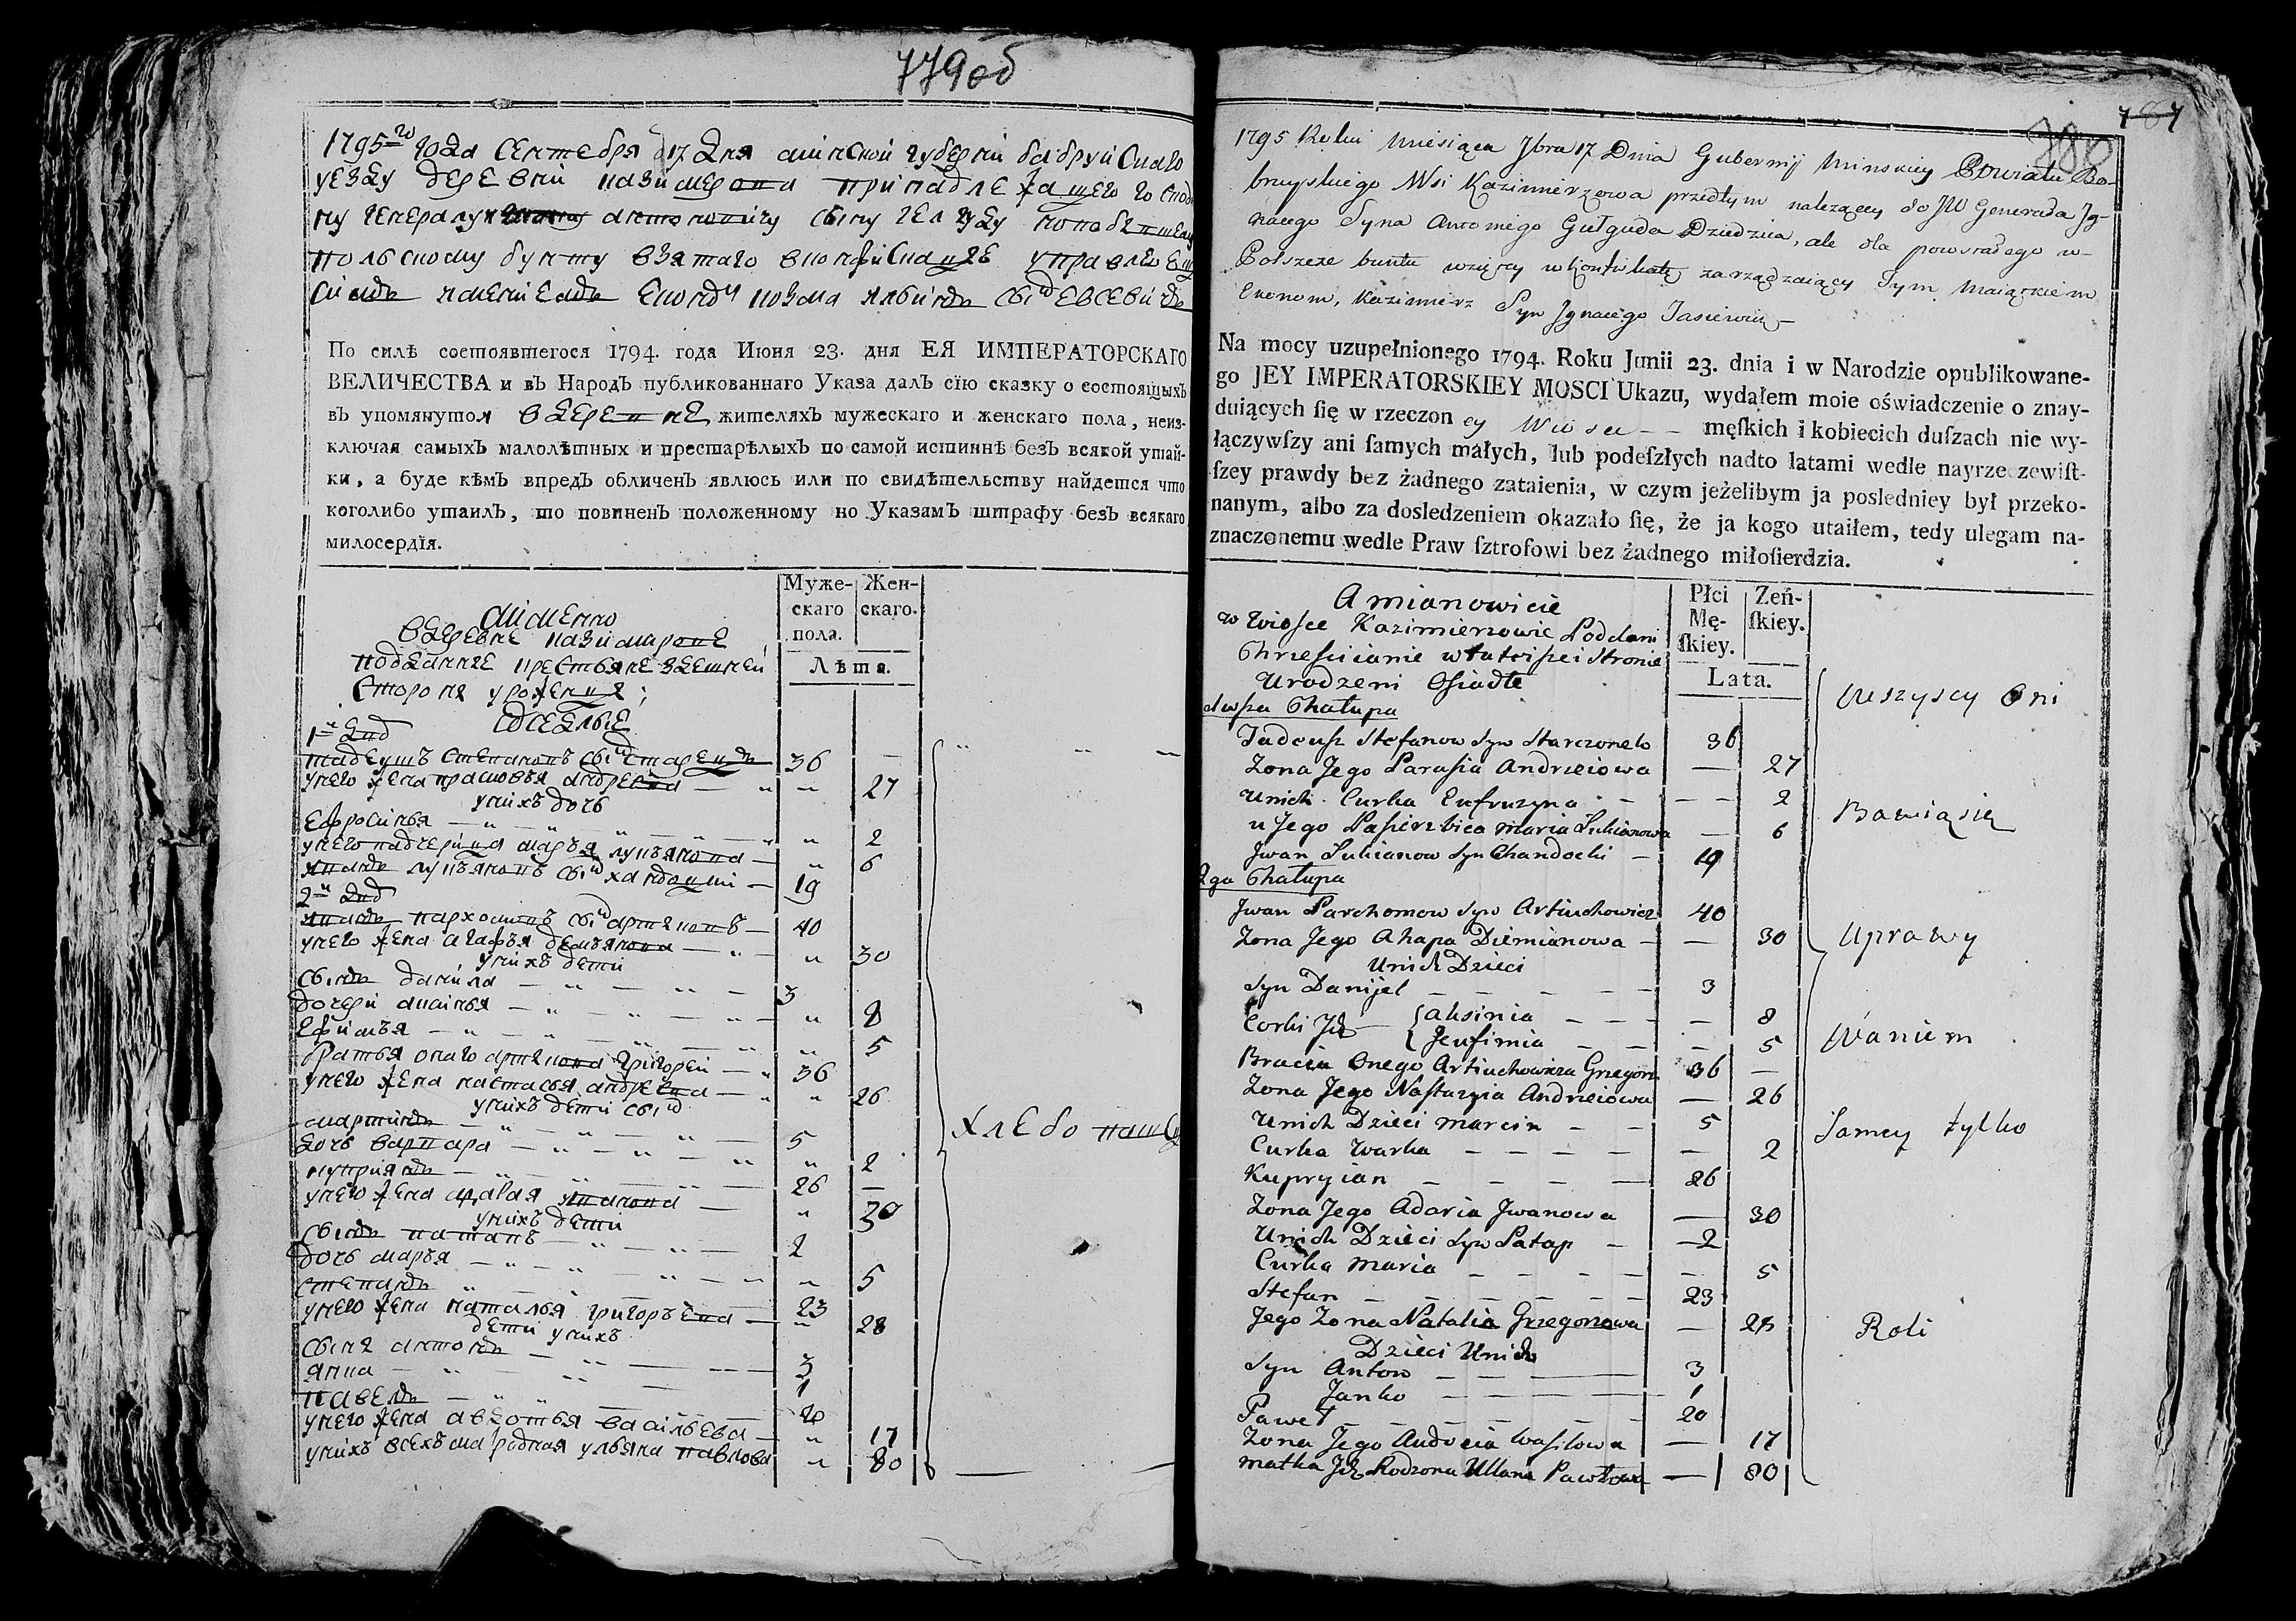 779об
1795го года сентебря д17 дня минской губернии бабруйскаго
уезду деревни казимерова принадлежащего госпо
ну генералу антоновичу сыну гелгуду
польскому бунту взятаго вконфискацие
имениемъ
По силѣ состоявшегося 1794. года Июня 23. дня ЕЯ ИМПЕРАТОРСКАГО
ВЕЛИЧЕСТВА и въ Народъ публикованнаго Указа далъ сїю сказку о состоящихъ
въ упомянутоя вдеревне жителяхъ мужескаго и женскаго пола, неиз-
ключая самыхъ малолѣтныхъ и престарѣлыхъ по самой истиннѣ безъ всякой утай-
ки, а буде кѣмъ впредъ обличенъ явлюсь или по свидѣтельству найдется что
коголибо утаилъ, то повиненъ положенному по Указамъ штрафу безъ всякаго
милосердїя.
Муже-скаго пола. Жен-скаго.
Лѣта.
Имменно
вдеревне казимерове
подданные крестьяне здешней
стороня урожении;
оседлые
1й дво
тадеушъ степановъ сынъ 36 —
унего жена прасковья андреева — " " 27
унихъ дочь
Ефросинья — " — " — " 2
унего падчерица марья лукьянова — " 6
иванъ лукьяновъ сынъ хандошки — 19
2й дво
иванъ пархомовъ сынъ артюховъ — 40
унего жена агафья демьянова — " — " 30
унихъ дети
сынъ данила — " — " — 3
дочери аксинья — " — " — " 8
Ефимья — " — " — " 5
братья онаго артюхова григорей — " 36
унего жена настасья андреева — " " 26
унихъ дети сынъ
мартинъ — " — " — 5
дочь варвара — " — " — " 2
куприянъ — " — " — 26 —
унего жена дарья иванова — " 30
унихъ дети
сынъ патапъ — " — " — 2
дочь марья — " — " — " 5
степанъ — " — " — 23
унего жена наталья григорьева — " 28
дети унихъ
сыне антонъ — " — 3
янка — " — " — 1
павелъ — " — " — 20
унего жена авдотья васильева — " 17
унихъ всехъ ма родная ульяна павлова " 80
хлебо паш
787
780
1795 Roku Miesiąca 7bra 17 Dnia Gubernij Minskiey Powiatu Bo-
bruyskiego Wsi Kazimierzowa przedtym należącey do JW Generała Jg-
nacego Syna Antoniego Gułguda Dziedzica, ale dla powstałego w-
Polszcze buntu wziętey w konfiskatę zarządzaiący Tym Maiątkiem
Ekonom, Kazimierz Syn Jgnacego Jasiewicz —
Na mocy uzupełnionego 1794. Roku Junii 23. dnia i w Narodzie opublikowane-
go JEY IMPERATORSKIEY MOSCI Ukazu, wydałem moie oświadczenie o znay-
duiących ſię w rzeczoney Wiosce — — męſkich i kobiecich duſzach nie wy-
łączywſzy ani ſamych małych, lub podeſzłych nadto latami wedle nayrzeczewiſt-
ſzey prawdy bez żadnego zataienia, w czym jeżelibym ja posledniey był przeko-
nanym, albo za dosledzeniem okazało ſię, że ja kogo utaiłem, tedy ulegam na-
znaczonemu wedle Praw ſztrofowi bez żadnego miłoſierdzia.
Płci Mę-ſkiey. Zeń-ſkiey.
Lata.
Amianowicie
w Wiosce Kazimierzowie Poddani
Chrześcianie w tuteiszei Stronie
Urodzeni Osiadłe
Chałupa
Tadeusz Stefanow Syn Starczonek 36
Zona Jego Parasia Andrzeiowa — 27
Unich Curka Eufruzyna — — — 2
u Jego Pasierzbica Maria Lukianowa — 6
Jwan Lukianow Syn Chandocki — 19
2ga Chałupa
Jwan Parchomow Syn Artiuchowicz 40
Zona Jego Ahapa Diemianowa — — 30
Unich Dzieci
Syn Danijel — — — — 3
Corki Jch { Aksinia — — — — 8
{ Jeufimia — — — — 5
Bracia Onego Artiuchowicza Grzegorz 36 —
Zona Jego Nastazyia Andrzeiowa — 26
Unich Dzieci Marcin — — 5
Curka Warka — — — — — 2
Kupryjan — — — — 26
Zona Jego Adaria Jwanowa — 30
Unich Dzieci Syn Patap — —2
Curka Maria — — — — — 5
Stefan — — — — — — 23
Jego Zona Natalia Grzegorzowa — 28
Dzieci Unich
Syn Anton — — — 3
Janko — — — — 1
Paweł — — — — — 20
Zona Jego Audocia Wasilowa — 17
Matka Jch Rodzona Ullana Pawłowa — 80
Wszyscy Oni
Bawią się
Uprawy
Waniem
Samey tylko
Roli